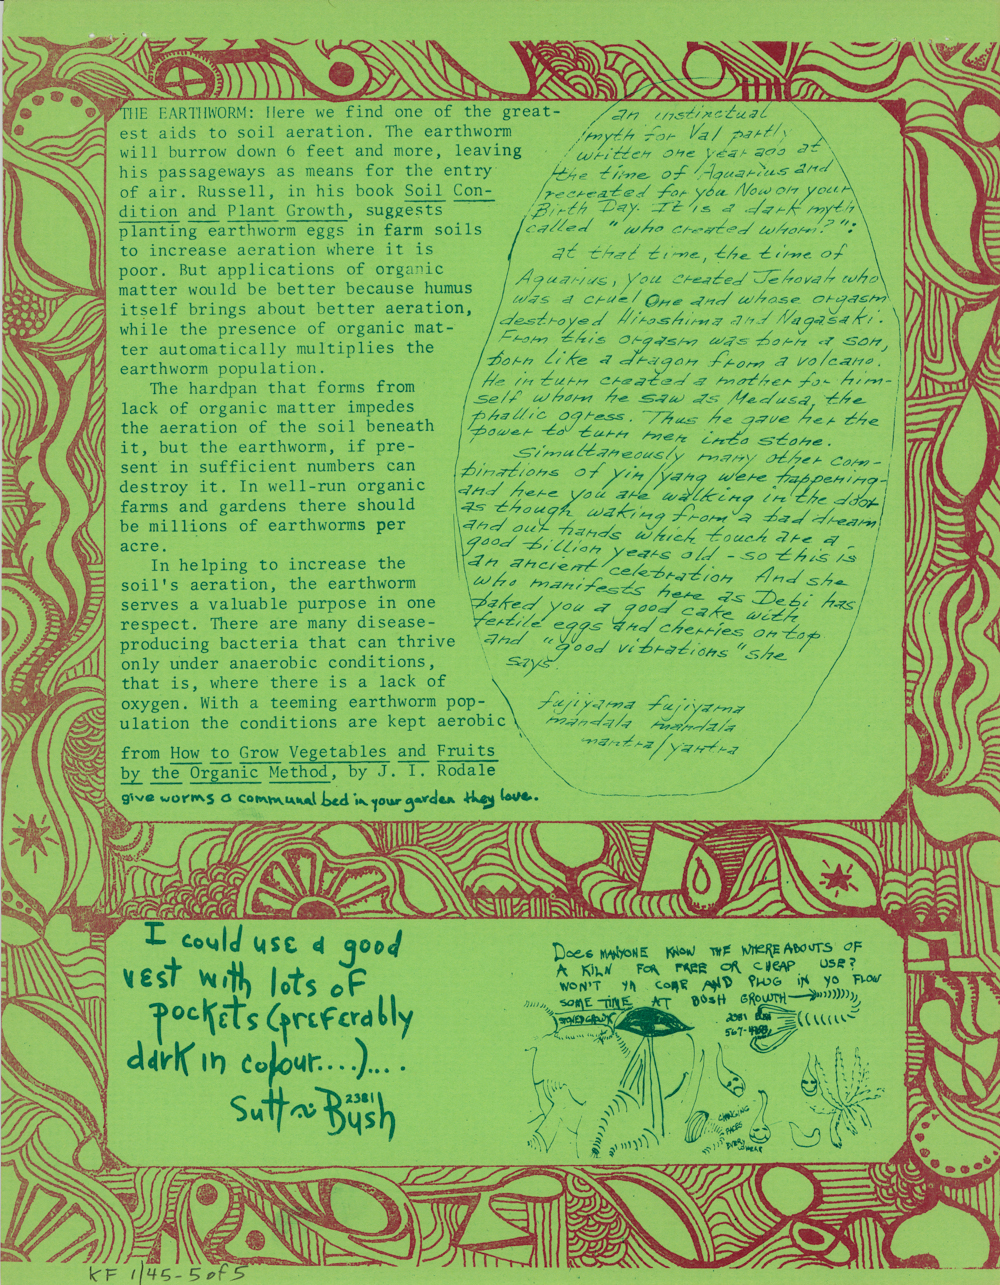 THE EARTHWORM: Here we find one of the great-
est aids to soil aeration. The earthworm
will burrow down 6 feet and more, leaving
his passageways as means for the entry
of air. Russell, in his book Soil Con-
dition and Plant Growth, suggests
planting earthworm eggs in farm soils
to increase aeration where it is
poor. But applications of organic
matter would be better because humus
itself brings about better aeration,
while the presence of organic mat-
ter automatically multiplies the
earthworm population.
The hardpan that forms from
lack of organic matter impedes
the aeration of the soil beneath
it, but the earthworm, if pre-
sent in sufficient numbers can
destroy it. In well-run organic
farms and gardens there should
be millions of earthworms per
acre.
In helping to increase the
soil's aeration, the earthworm
serves a valuable purpose in one
respect. There are many disease-
producing bacteria that can thrive
only under anaerobic conditions,
that is, where there is a lack of
oxygen. With a teeming earthworm pop-
ulation the conditions are kept aerobic
from How to Grow Vegetables and Fruits
by the Organic Method, by J. I. Rodale
give worms a communal bed in your garden they love.
an instinctual
myth for Val partly
written one year ago at
the time of Aquarius and
recreated for you Now on your
Birth Day. It is a dark myth
called "who created whom?":
at that time, the time of
Aquarius, you created Jehovah who
was a cruel One and whose orgasm
destroyed Hiroshima and Nagasaki.
From this orgasm was born a son,
born like a dragon from a volcano.
He in turn created a mother for him-
self whom he saw as Medusa, the
phallic ogress. Thus he gave her the
power to turn men into stone.
Simultaneously many other com-
binations of yin/yang were happening-
and here you are walking in the door
as though waking from a bad dream
and our hands which touch are a
good billion years old - so this is
an ancient celebration And she
who manifests here as Debi has
baked you a good cake with
fertile eggs and cherries on top
and "good vibrations" she
says.
fujiyama fujiyama
mandala mandala
mantra/yantra
I could use a good
vest with lots of
pockets (preferably
dark in colour....)....
Sutt ~ 2381 Bush
DOES MANYONE KNOW THE WHEREABOUTS OF
A KILN FOR FREE OR CHEAP USE?
WON'T YA COME AND PLUG IN YO FLOW
SOME TIME AT BUSH GROWTH
2381 BUSH
567-
CHANGING
FACES
EVERY
WHERE
KF 1/45-5 of 5